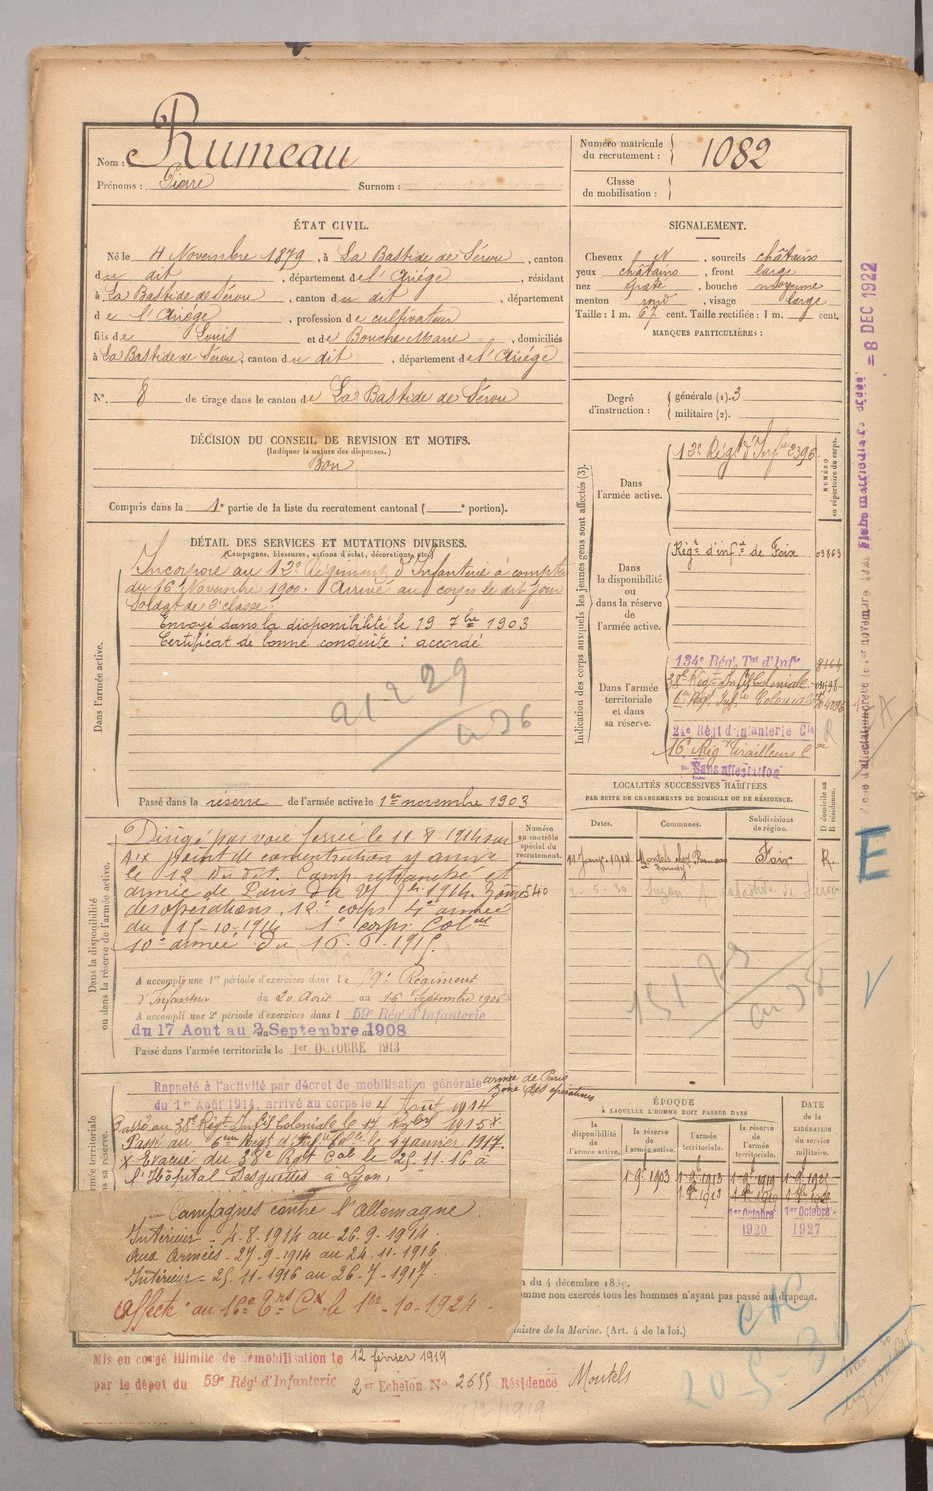 Nom : Rumeau
Prénoms : Pierre Surnom :
Numéro matricule du recrutement : 1082
Classe de mobilisation :
ÉTAT CIVIL.
Né le 4 Novembre 1879, à La Bastide de Sérou, canton
du dit, département de l'Ariège, résidant
à La Bastide de Sérou, canton du dit, département
de l'Ariège, profession de cultivateur
fils de Louis et de Bouche Marie, domiciliés
à La Bastide de Sérou, canton du dit, département de l'Ariège
N°. 8 de tirage dans le canton de La Bastide de Sérou
SIGNALEMENT.
Cheveux N, sourcils châtains
yeux châtains, front large
nez épaté, bouche moyenne
menton rond, visage large
Taille : 1 m. 67 cent. Taille rectifiée : 1 m. cent.
MARQUES PARTICULIÈRES :
Degré d'instruction : générale (1). 3
militaire (2).
DÉCISION DU CONSEIL DE REVISION ET MOTIFS.
(Indiquer la nature des dispenses.)
Bon
Compris dans la 1e partie de la liste du recrutement cantonal ( e portion).
DÉTAIL DES SERVICES ET MUTATIONS DIVERSES.
(Campagnes, blessures, actions d'éclat, décorations, etc.)
Dans l'armée active.
Incorporé au 12e Régiment d'Infanterie à compter
du 16 Novembre 1900. Arrivé au corps le dit jour
Soldat de 2e classe.
Envoyé dans la disponibilité le 19 7bre 1903
Certificat de bonne conduite : accordé
21 2 29
Passé dans la réserve de l'armée active le 1er novembre 1903
Indication des corps auxquels les jeunes gens sont affectés (3).
NUMÉRO au répertoire du corps.
Dans l'armée active.
12e Régt d'Infie 2396
Dans la disponibilité ou dans la réserve de l'armée active.
Régt d'infie de Foix 03863
Dans l'armée territoriale et dans sa réserve.
134e Rég. Tal d'Infie 8164
38e Régt Infie Coloniale
6e Rég. Infie Coloniale
21e Régt d'Infanterie Cle
16e Rég Tirailleurs
Sans affectation
LOCALITÉS SUCCESSIVES HABITÉES
PAR SUITE DE CHANGEMENTS DE DOMICILE OU DE RÉSIDENCE.
Dates. Communes. Subdivisions de région. D domicile ou R résidence.
Montels Foix R.
2-5-30
151 79
Dans la disponibilité ou dans la réserve de l'armée active.
Numéro au contrôle spécial du recrutement.
Dirigé par voie ferrée le 11.8.1914 sur
Aix point de concentration y arrivé
le 12 du dit. Camp retranché et
armée de Paris du 1914 Zone 540
des opérations, 12e corps 4e armée
du 15-10-1914 1er corps Colal
10e armée du 16-6-1915.
A accompli une 1re période d'exercices dans le 59e Régiment
d'Infanterie du 20 Août au 16 Septembre 1906
A accompli une 2e période d'exercices dans l 59e Rég. d'Infanterie
du 17 Aout au 2 Septembre 1908
Passé dans l'armée territoriale le 1er OCTOBRE 1913
Rappelé à l'activité par décret de mobilisation générale armée de Paris
du 1er Août 1914, arrivé au corps le 4 Août 1914 Zone des opérations
Passé au 38e Régt Infie Coloniale le 1915 X
Passé au 6eme Régt d'Infie Colle le 4 janvier 1917.
X Evacué du 38e Rgt Col le 25.11.16 à
l'Hôpital Desgenettes à Lyon.
Campagnes contre l'allemagne.
Intérieur - 4-8-1914 au 26-9-1914.
Aux Armées - 27-9-1914 au 24-11-1916.
Intérieur - 25-11-1916 au 26-7-1917.
Affecté au 16e Ers Cx le 1er-10-1924.
ÉPOQUE
À LAQUELLE L'HOMME DOIT PASSER DANS
la disponibilité de l'armée active. la réserve de l'armée active. l'armée territoriale. la réserve de l'armée territoriale.
DATE de la LIBÉRATION du service militaire.
1903 1913 1919
1er Octobre 1920 1er Octobre 1927
omme non exercés tous les hommes n'ayant pas passé au drapeau.
inistre de la Marine. (Art. 4 de la loi.)
Mis en congé illimité de démobilisation le 12 février 1919
par le dépot du 59e Rég. d'Infanterie 2er Echelon No 2655 Résidence Montels
CAC
E
= 8 DEC 1922